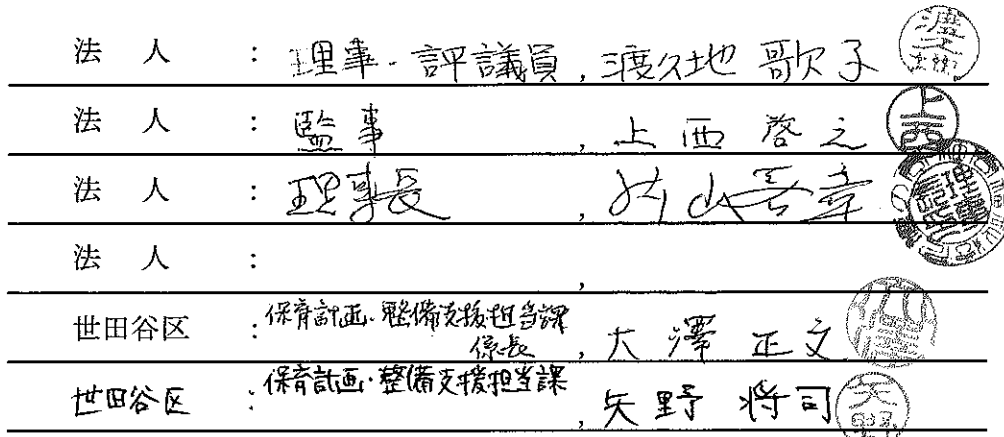 法 人 : 理事・評議員, 渡久地 歌子
法 人 : 監事 , 上西 啓之 上西
法 人 : 理事長 , 山 理事長
法 人 : ,
世田谷区 : 保育計画・整備支援担当課 係長 , 大澤 正文 大澤
世田谷区 : 保育計画・整備支援担当課 , 矢野 将司 矢野